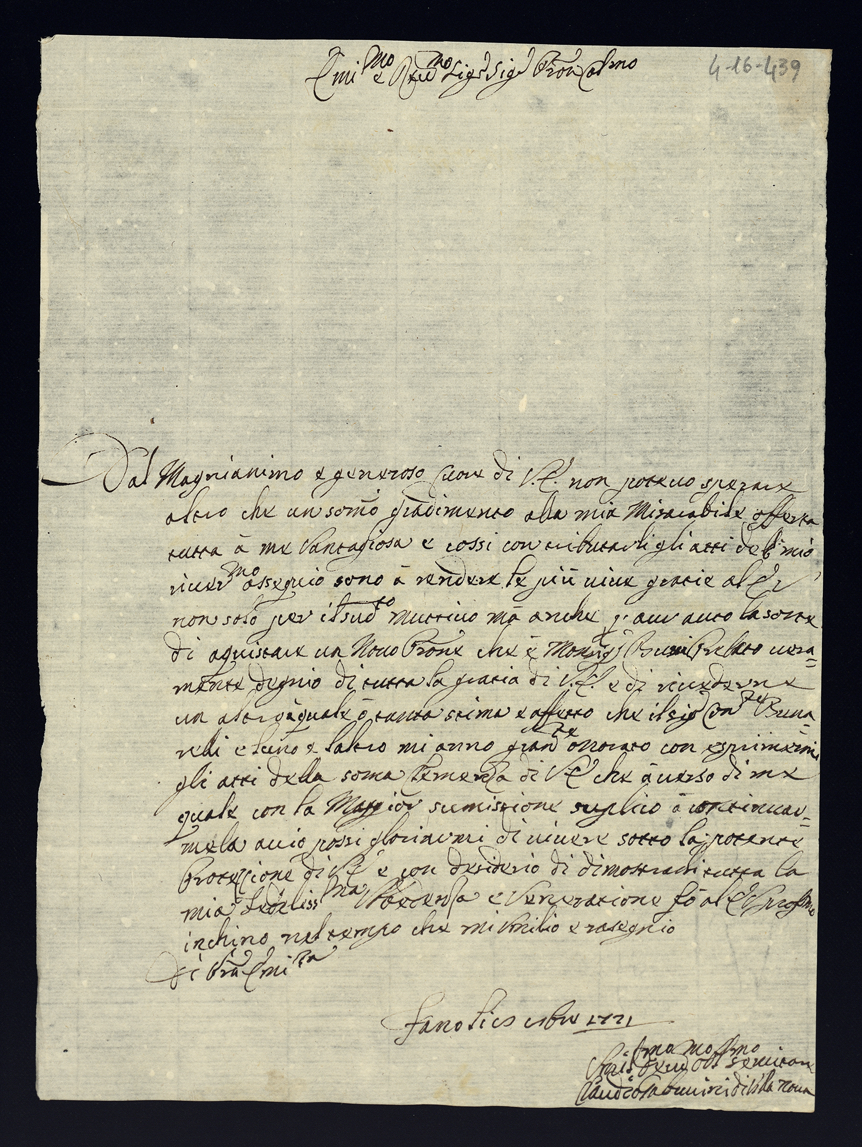 Emi.mo e Re.mo Sig.r Sig.r Pron Col.mo
4-16-439
Dal Magnianimo e generoso Cuore di V.E. non potevo sperare
altro che un somo gradimento alla mia Miserabile offerta
tutta à me Vantagiosa e cossi con tributarli gli atti del mio
river.mo ossequio sono à rendere le più vive gratie al E.V.
non solo per il sud.to muttivo mà anche p aur auto la sorte
di aquistare un Novo Prone che è Monsig.r Prelato vera=
mente degnio di tutta la gratia di V.E. e di rivederne
un altro quale ò tanta stima e affetto che il sig.r Con.te Bona=
relli e l'uno e l'altro mi anno onorato con esprimermi
gli atti della soma di V.E. che à verso di me
quale con la Maggior sumissione suplico à continuar=
mela acciò possi gloriarmi di vivere sotto la potente
Protezione di V.E. e con desiderio di dimostrarli tutta la
mia fedeliss.ma e Venerazione fò al E.V.
inchino nel tempo che mi Umilio e rasegnio
Di Vra Emi.za
Fano li 1721